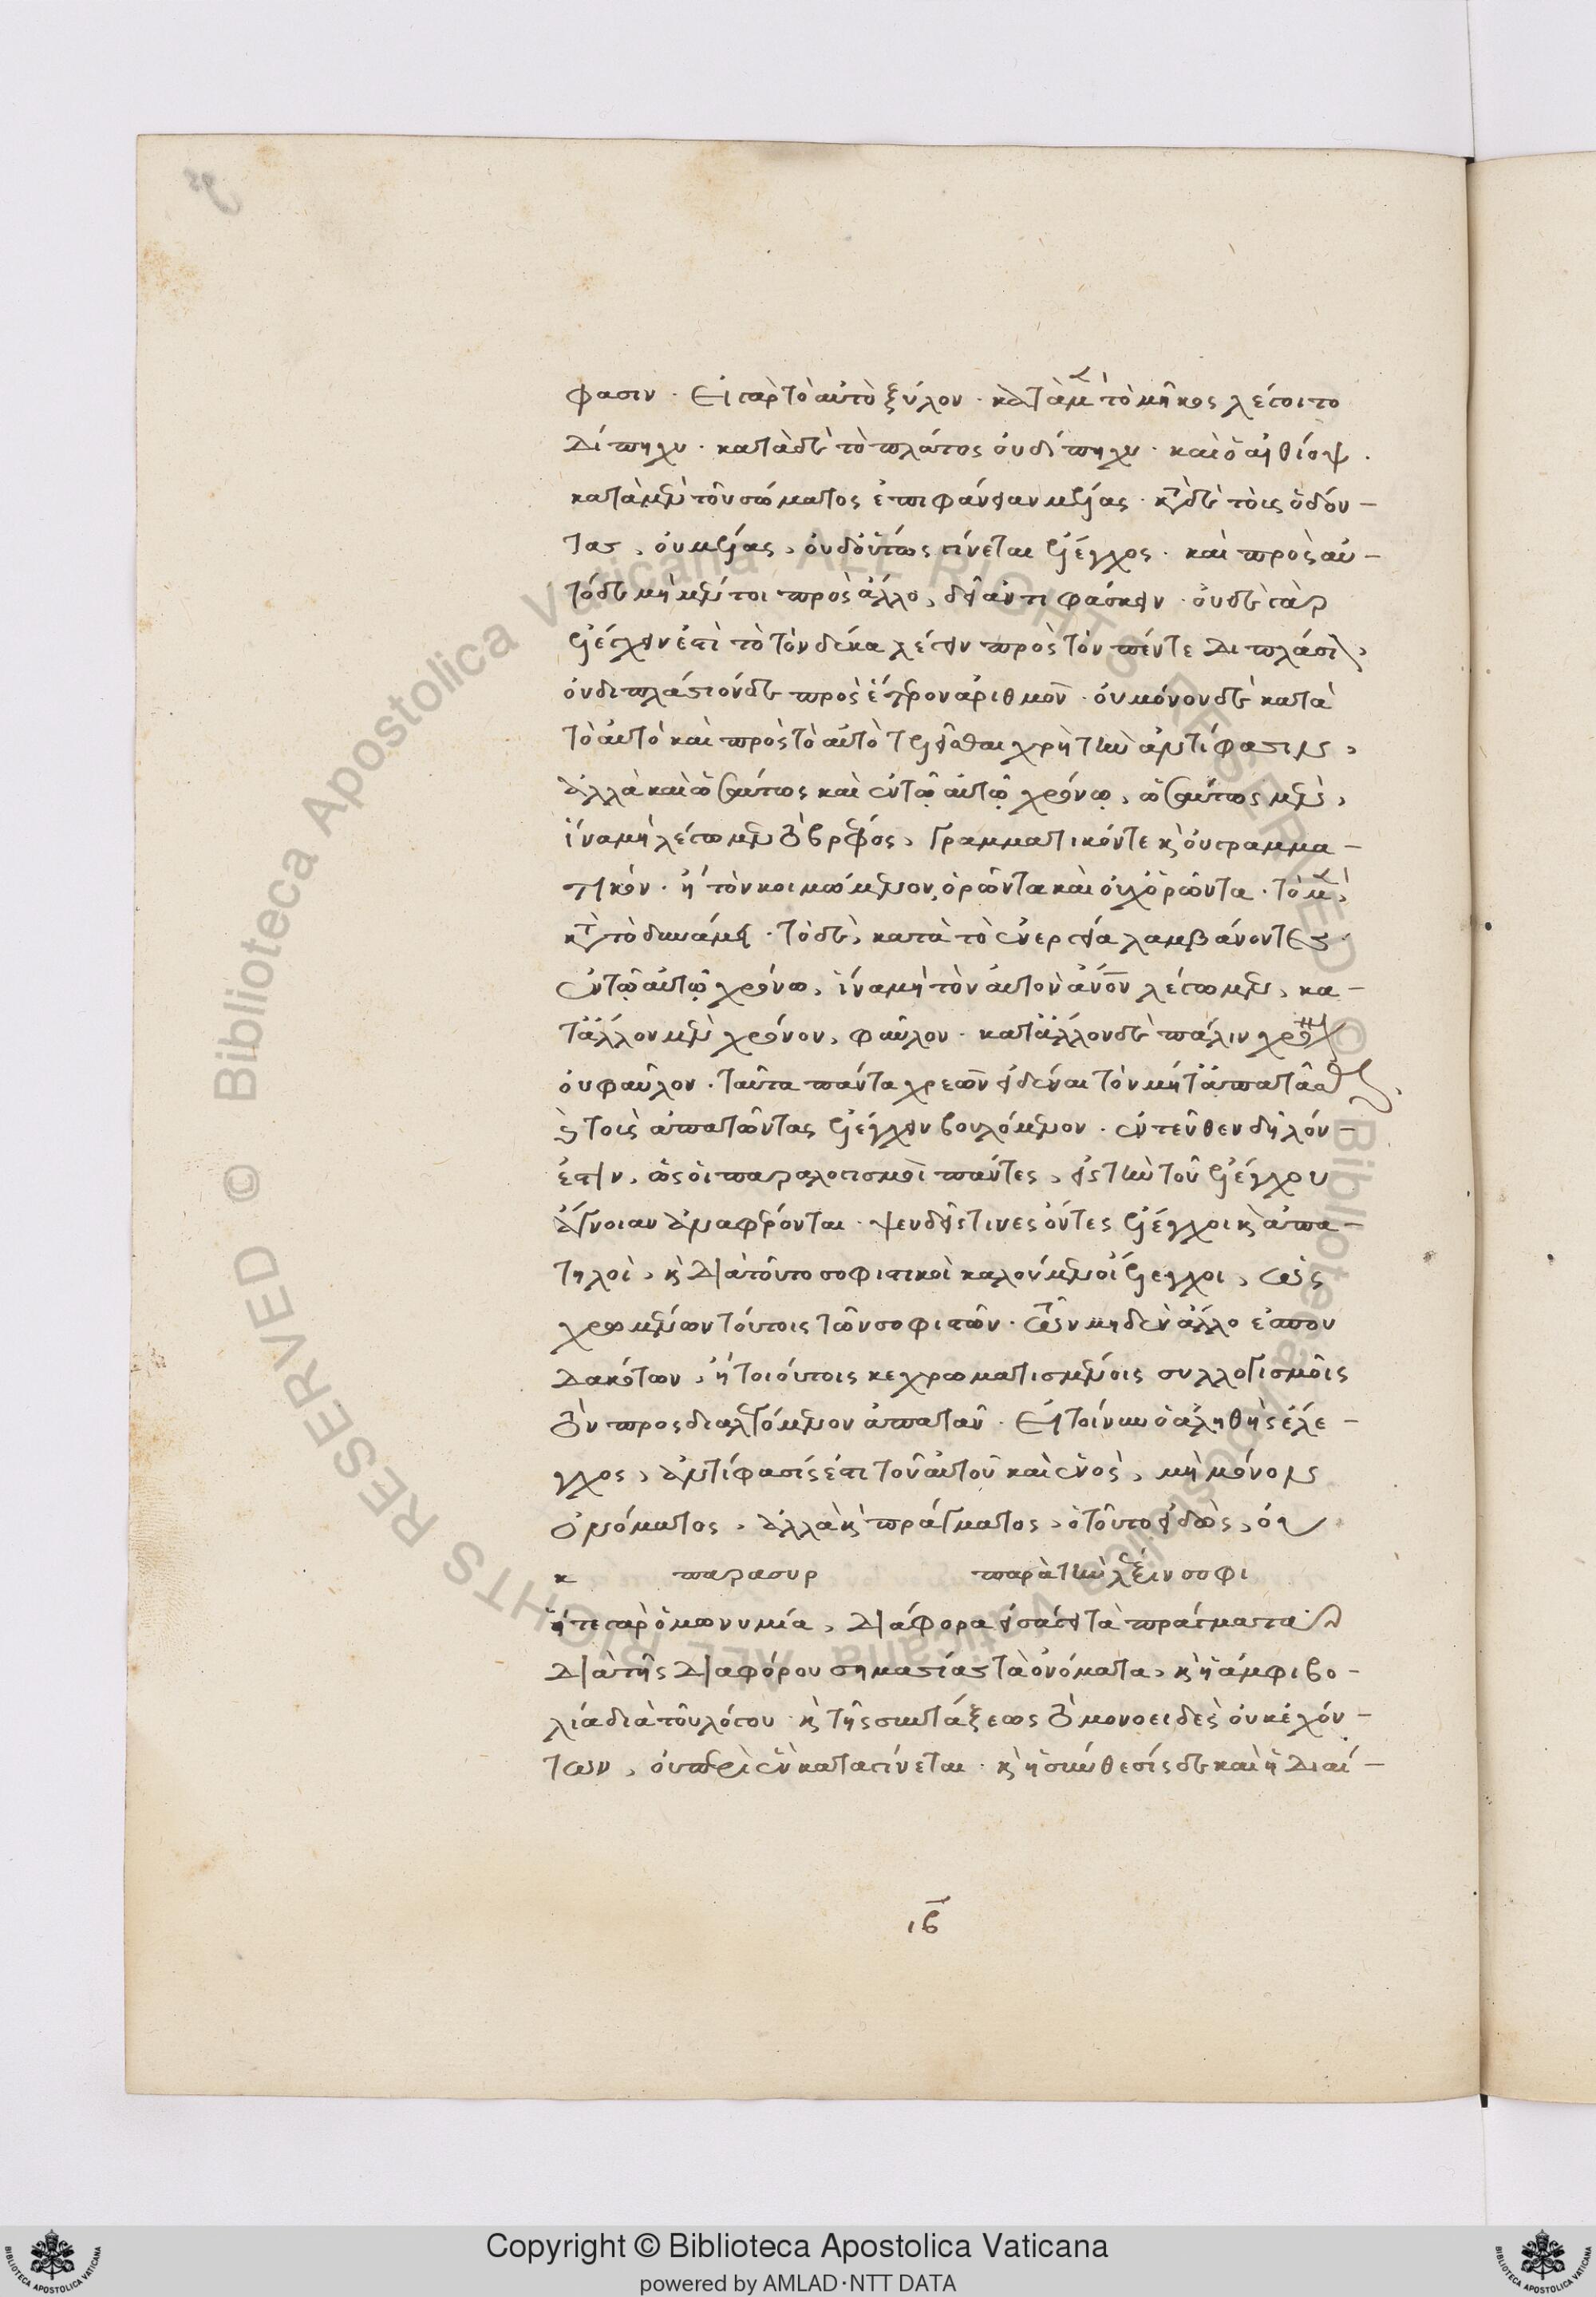 φασιν · εἰ γὰρ τὸ αὐτὸ ξύλον · κατὰ μὲν τὸ μῆκος λέγοιτο
δίπηχυ · κατὰ δὲ τὸ πλάτος οὐ δίπηχυ · καὶ ὁ αἰθίοψ ·
κατὰ μὲν τὴν τοῦ σώματος ἐπιφάνειαν μέλας · κατὰ δὲ τοὺς ὀδόν-
τας, οὐ μέλας, οὐδ' οὕτως γίνεται ἔλεγχος · καὶ πρὸς αὐ-
τὸ δὲ μὴ μέντοι πρὸς ἄλλο, δεῖ ἀντιφάσκειν · οὐδὲ γὰρ
ἐλέγχειν ἐστὶ τὸ τὸν δέκα λέγειν πρὸς τὸν πέντε διπλάσιον,
οὐ διπλάσιον δὲ πρὸς ἕτερον ἀριθμόν · οὐ μόνον δὲ κατὰ
τὸ αὐτὸ καὶ πρὸς τὸ αὐτὸ τελεῖσθαι χρὴ τὴν ἀντίφασιν,
ἀλλὰ καὶ ὡσαύτως καὶ ἐν τῷ αὐτῷ χρόνῳ, ὡσαύτως μὲν,
ἵνα μὴ λέγωμεν τὸ βρέφος, γραμματικόν τε καὶ οὐ γραμμα-
τικόν · ἢ τὸν κοιμώμενον, ὁρῶντα καὶ οὐχ ὁρῶντα · τὸ μὲν,
κατὰ τὸ δυνάμει · τὸ δὲ, κατὰ τὸ ἐνεργείᾳ λαμβάνοντες ·
ἐν τῷ αὐτῷ χρόνῳ, ἵνα μὴ τὸν αὐτὸν ἄνον λέγωμεν, κα-
τ' ἄλλον μὲν χρόνον, φαῦλον · κατ' ἄλλον δὲ πάλιν χρόνον
οὐ φαῦλον · ταῦτα πάντα χρεὼν εἰδέναι τὸν μήτ' ἀπατᾶσθαι,
καὶ τοὺς ἀπατῶντας ἐλέγχειν βουλόμενον · ἐντεῦθεν δῆλόν
ἐστιν, ὡς οἱ παραλογισμοὶ πάντες, εἰς τὴν τοῦ ἐλέγχου
ἄγνοιαν ἀναφέρονται · ψευδεῖς τινες ὄντες ἔλεγχοι καὶ ἀπα-
τηλοὶ, καὶ διὰ τοῦτο σοφιστικοὶ καλούμενοι ἔλεγχοι,
χρωμένων τούτοις τῶν σοφιστῶν · τῶν μηδὲν ἄλλο ἐσπου
δακότων, ἢ τοιούτοις κεχρωματισμένοις συλλογισμοῖς
τὸν προσδιαλεγόμενον ἀπατᾶν · εἰ τοίνυν ὁ ἀληθὴς ἔλε-
γχος, ἀντίφασίς ἐστι τοῦ αὐτοῦ καὶ ἑνὸς, μὴ μόνον
ὀνόματος, ἀλλὰ καὶ πράγματος, ὁ τοῦτο εἰδὼς,
κ παρασυρ παρὰ τὴν λέξιν σοφι
ἥ τε γὰρ ὁμωνυμία, διάφορα εἰσάγει τὰ πράγματα
διὰ τῆς διαφόρου σημασίας τὰ ὀνόματα, καὶ ἡ ἀμφιβο-
λία διὰ τοῦ λόγου καὶ τῆς συντάξεως τὸ μονοειδὲς οὐκ ἐχόν-
των, οὐ περὶ ἓν καταγίνεται · καὶ ἡ σύνθεσίς δε καὶ ἡ διαί-
ιβ
Copyright © Biblioteca Apostolica Vaticana
powered by AMLAD·NTT DATA